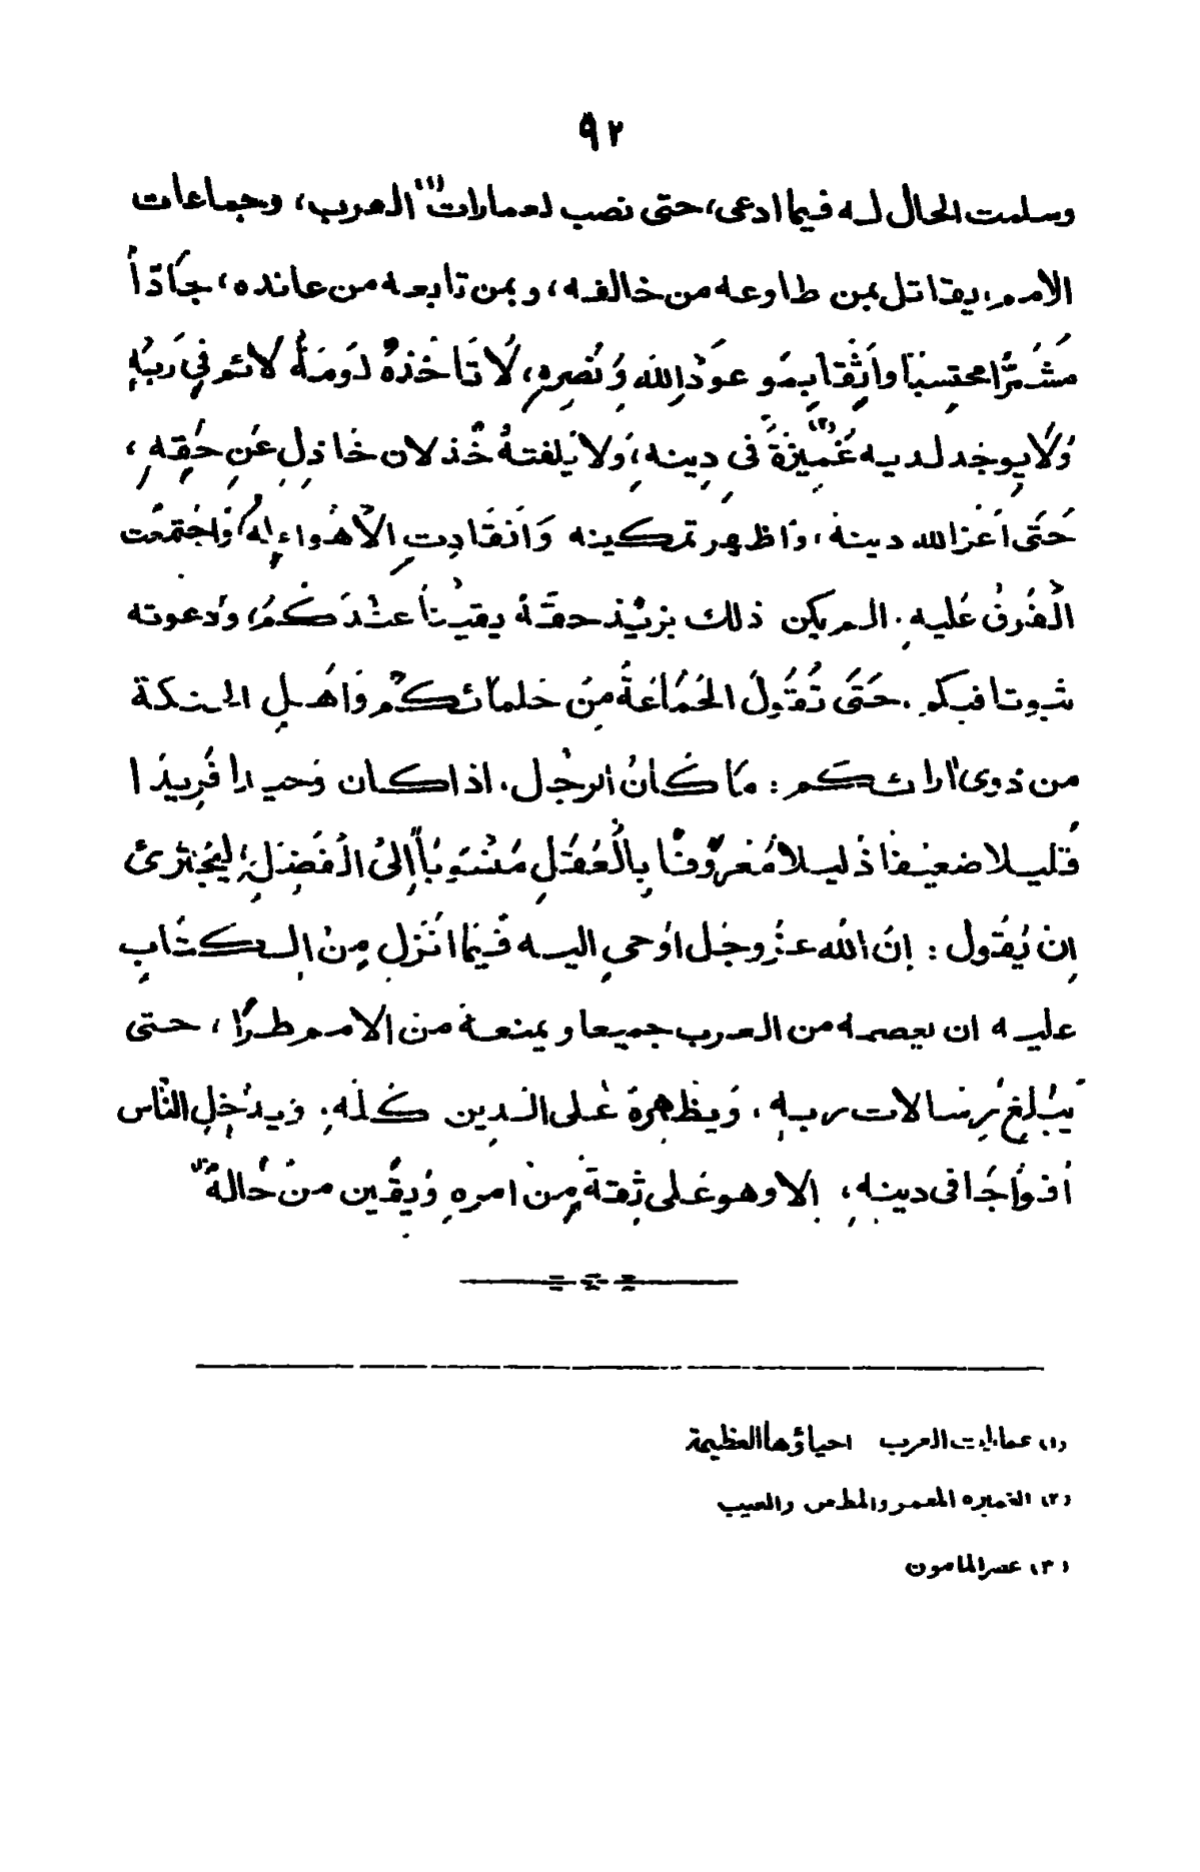 ٩٢
وسلمت الحال له فيما ادعى، حتى نصب لعمارات (١) العرب، وجماعات
الامم، يقاتل بمن طاوعه من خالفه، وبمن تابعه من عانده، جَادّاً
مشَمِّرًا محتسبًا واثِقًا بموعود الله ونَصرِهِ، لَا تَاخذهُ لَومَةُ لائم في ربّهِ
وَلَا يوجَد لديه غَمِيزَةٌ (٢) فى دِينه، ولا يَلفتهُ خُذلان خَاذِلٍ عَن حَقهِ،
حَتَّى أعَز الله دينهُ، واظهر تمكينه وَانقَادتِ الْاهْواء لهُ، وَاجتمعَت
الْفرَقُ عَليهِ. الم يكن ذلك يزيْد حقهُ يقيناً عنْدَكُم، وَدعوته
ثبوتا فيكم. حَتَّى تَقُولَ الجَمَاعَةُ مِن حلمائكُم وَاهْل الحنكة
من ذوى ارائكم: مَا كَانَ الرجُل. اذا كان وَحيدا فَرِيدًا
قَليلا ضعيفا ذَليلا مَعْروفًا بِالْعَقْلِ مَنْسوبًا إلى الْفَضْلِ، ليَجْترئ
ان يَقول: إنَ الله عزَّ وجل اوْحى اليه فيَما انْزل مِن الكتَابِ
عليه ان يعصمه من العرب جميعا ويمنعه من الامم طرًا، حتى
يُبَلِّغ رِسالات ربهِ، وَيظهِرهُ عَلى الدين كلهِ. ويدْخل النَّاس
افْواجًا فى دينهِ، إلا وهو عَلى ثِقةٍ مِن امرهِ وَيقين من حَالهُ (٣)
(١) عمارات العرب احياؤها العظيمة
(٢) الغميزه المغمز والمطعن والعيب
(٣) عصر المامون